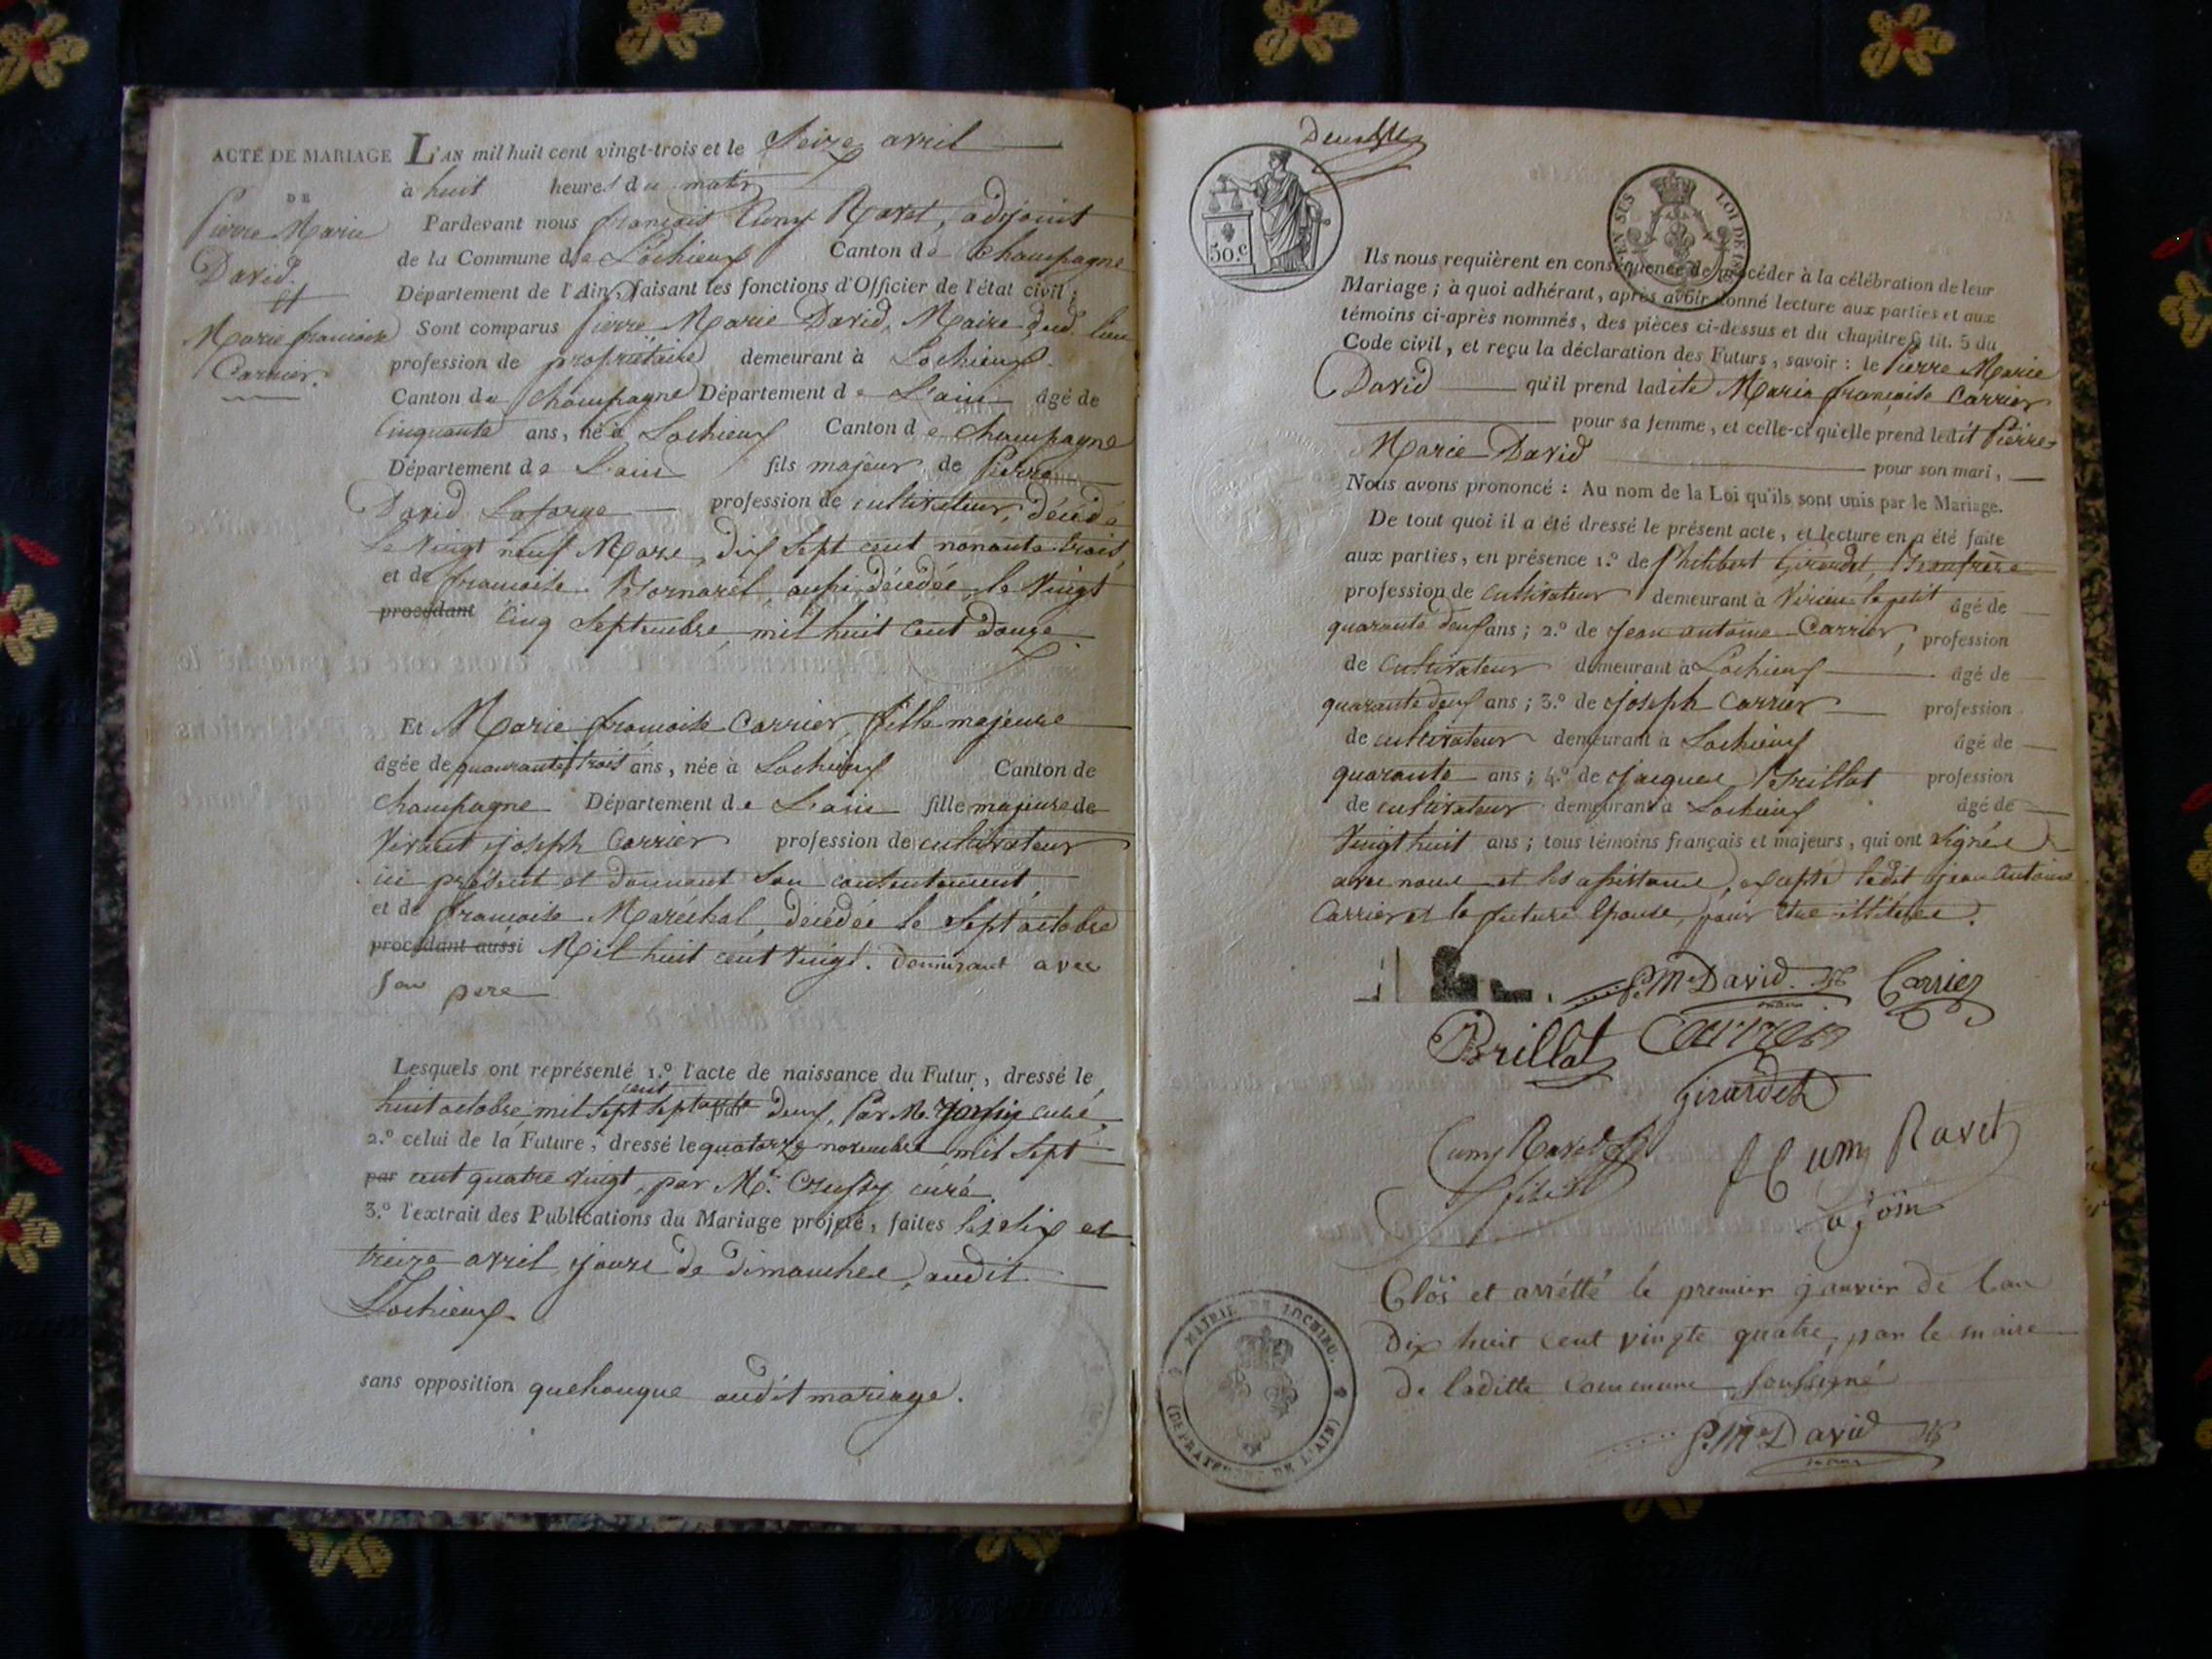 ACTE DE MARIAGE
DE
Pierre Marie
David.
et
Marie françoise
Carrier.
L'AN mil huit cent vingt-trois et le Seize avril
à huit heures du matin
Pardevant nous françois Cumy Ravet, adjoint
de la Commune de Lochieux Canton de Champagne
Département de l'Ain, faisant les fonctions d'Officier de l'état civil;
Sont comparus Pierre Marie David, Maire dud. lieu
profession de propriétaire demeurant à Lochieux
Canton de Champagne Département de L'ain âgé de
Cinquante ans, né à Lochieux Canton de Champagne
Département de L'ain fils majeur de Pierre
David Laforge profession de cultivateur, décédé
le Vingt neuf Mars, dix Sept cent nonante trois,
et de françoise Bornarel, aussi décédée le Vingt
procédant Cinq Septembre mil huit Cent douze
Et Marie françoise Carrier, fille majeure
âgée de quaurante trois ans, née à Lochieux Canton de
Champagne Département de L'ain fille majeure de
Vivant joseph Carrier profession de cultivateur
ici présent et donnant Son contentement,
et de françoise Maréchal, décédée le Sept octobre
procédant aussi Mil huit cent Vingt. demeurant avec
Son pere
Lesquels ont représenté 1.º l'acte de naissance du Futur, dressé le
huit octobre, mil Sept cent Septante deux, Par Mr. curé,
2.º celui de la Future, dressé le quatorze novembre mil Sept
par cent quatre vingt, par Mr. curé.
3.º l'extrait des Publications du Mariage projeté, faites les Six et
treize avril jours de dimanche, audit
Lochieux
sans opposition quelconque audit mariage.
50.C
LOI DE
Ils nous requièrent en conséquence de procéder à la célébration de leur
Mariage; à quoi adhérant, après avoir donné lecture aux parties et aux
témoins ci-après nommés, des pièces ci-dessus et du chapitre 6 tit. 5 du
Code civil, et reçu la déclaration des Futurs, savoir: le Pierre Marie
David qu'il prend ladite Marie françoise Carrier
pour sa femme, et celle-ci qu'elle prend ledit Pierre
Marie David pour son mari,
Nous avons prononcé: Au nom de la Loi qu'ils sont unis par le Mariage.
De tout quoi il a été dressé le présent acte, et lecture en a été faite
aux parties, en présence 1.º de Philibert Girardet, Beaufrère
profession de Cultivateur demeurant à Virieu le petit âgé de
quarante deux ans; 2.º de Jean antoine Carrier, profession
de Cultivateur demeurant à Lochieux âgé de
quarante deux ans; 3.º de joseph Carrier profession
de cultivateur demeurant à Lochieux âgé de
quarante ans; 4.º de jacques Brillat profession
de cultivateur demeurant à Lochieux âgé de
Vingt huit ans; tous témoins français et majeurs, qui ont signés
avec nous et les assistans, excepté ledit jean Antoine
Carrier et la future Epouse, pour être illiterés.
P. Me David. Carrier
Brillat Carrier
Girardet
Cumy Ravet
fils
Cumy Ravet
ajoin
Clôs et arrêtté le premier janvier de l'an
Dix huit cent vingte quatre, par le maire
de laditte Commune soussigné
P. Me David
MAIRIE DE LOCHIEU.
(DEPRATEMENT DE L'AIN)